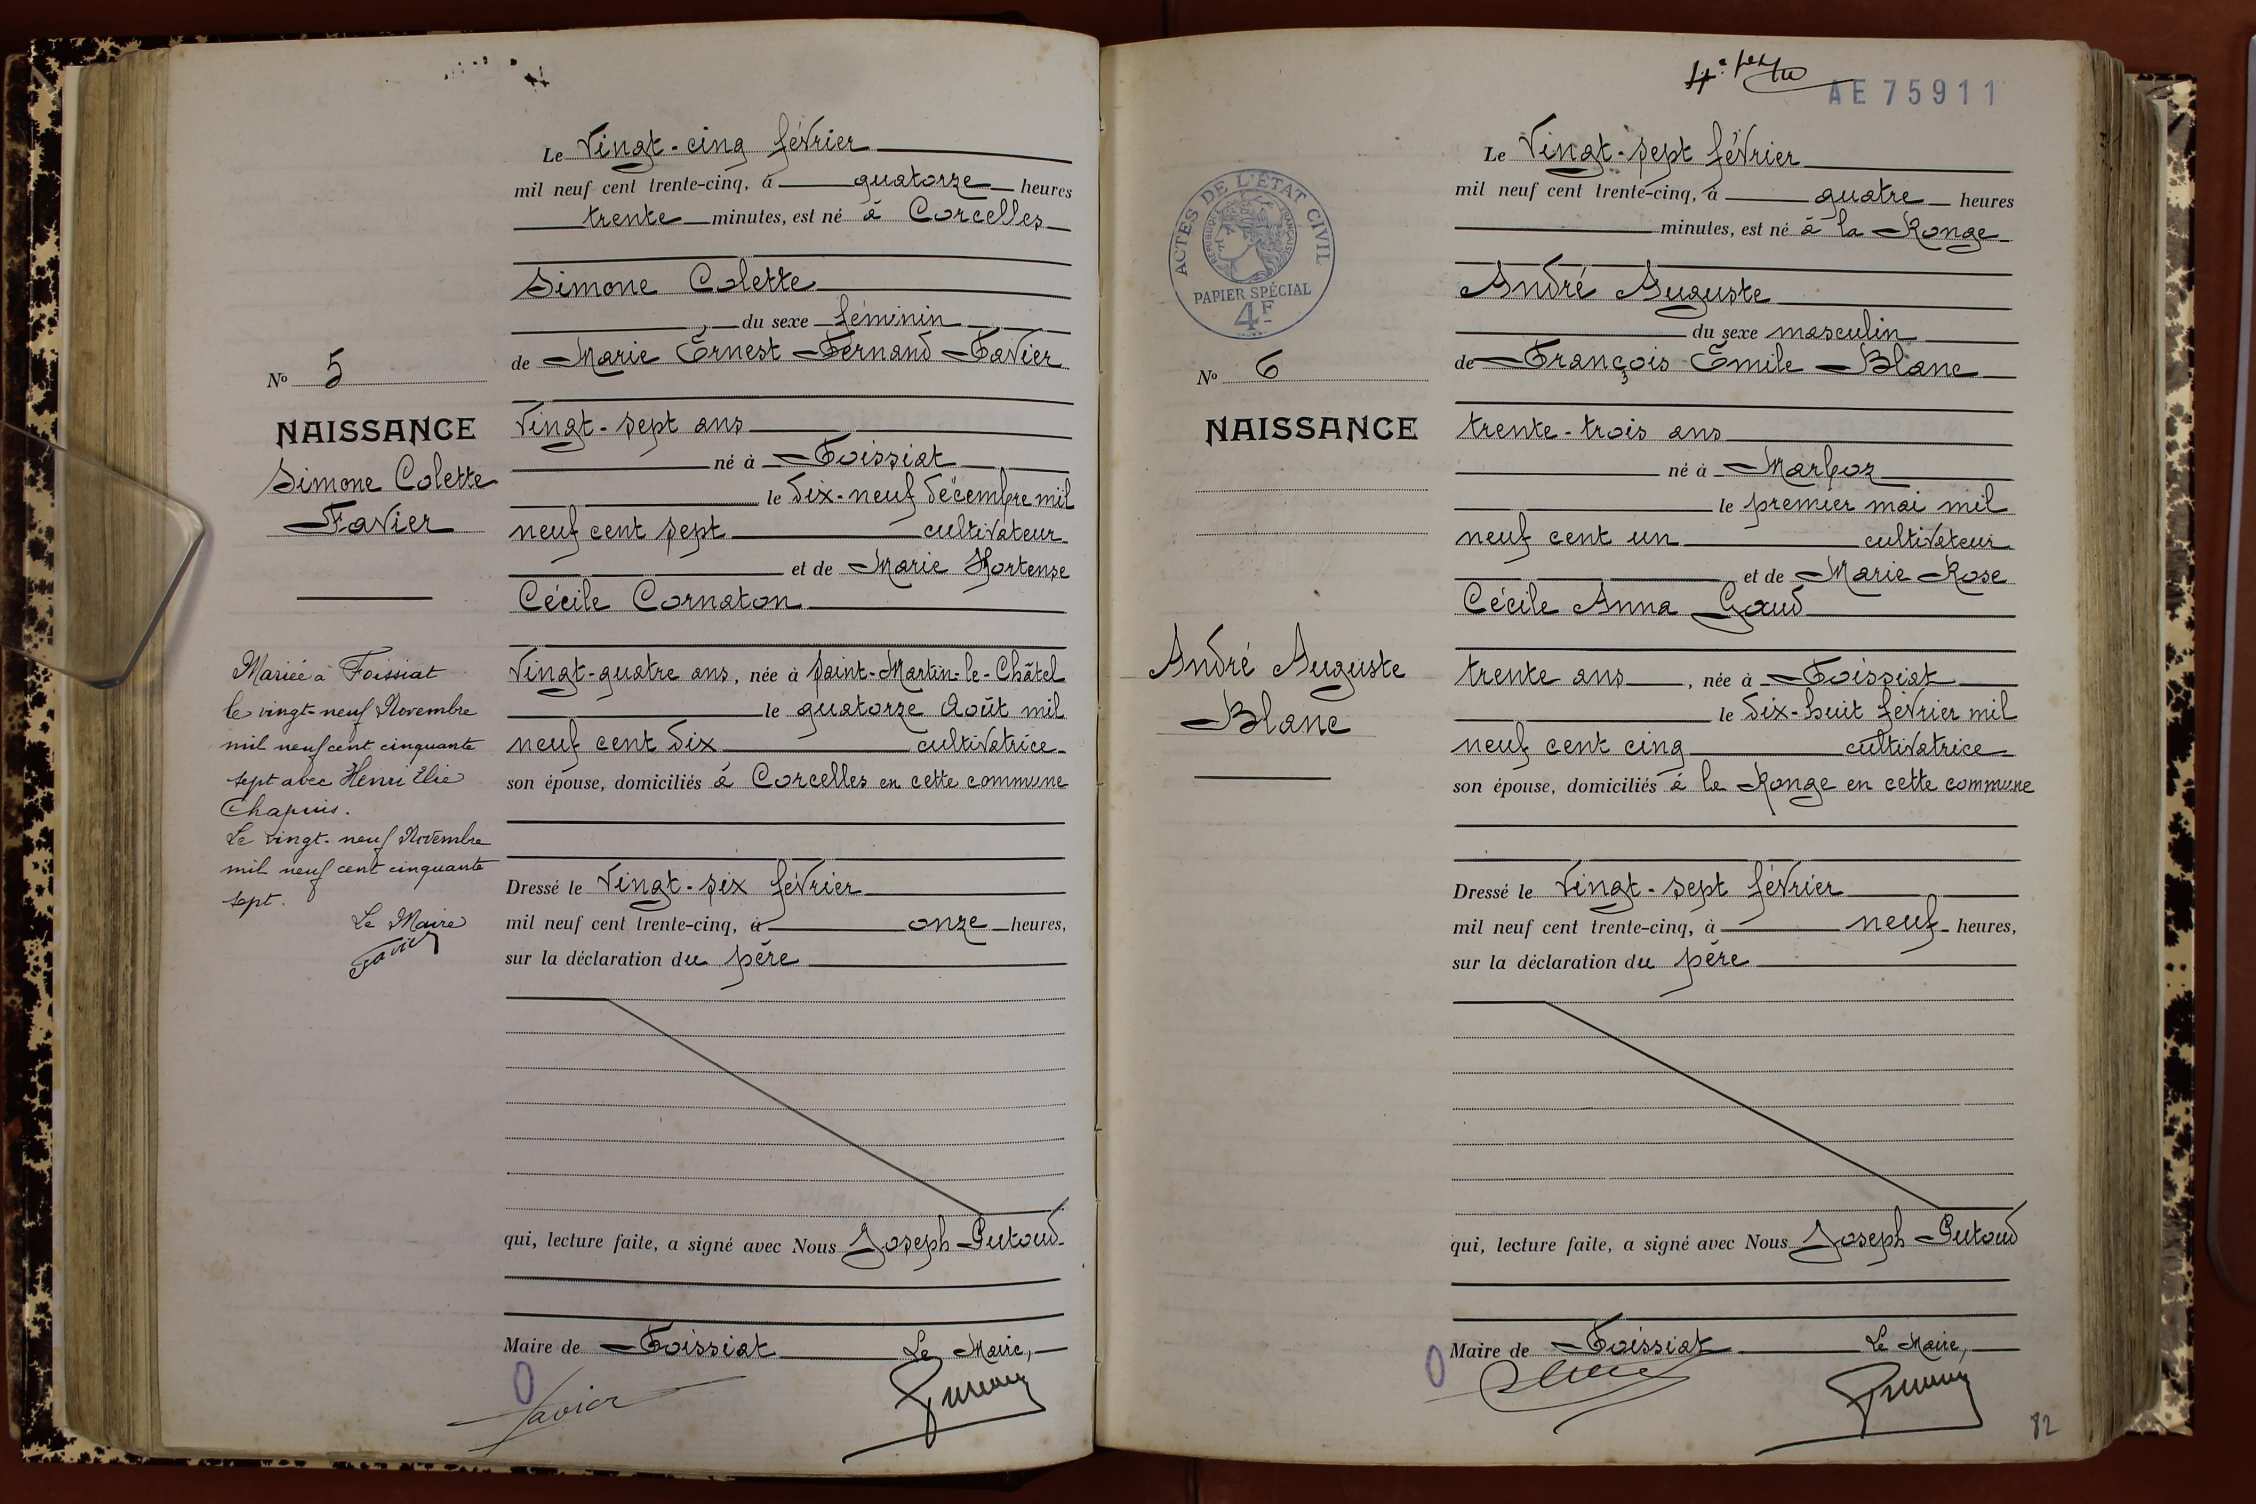 Le Vingt-cinq février
mil neuf cent trente-cinq, à quatorze heures
trente minutes, est né à Corcelles
Simone Colette
du sexe féminin
de Marie Ernest Fernand Favier
N° 5
NAISSANCE
Simone Colette
Favier
Vingt-sept ans
né à Foissiat
le dix-neuf décembre mil
neuf cent sept cultivateur
et de Marie Hortense
Cécile Cornaton
Vingt-quatre ans, née à Saint-Martin-le-Châtel
le quatorze Août mil
neuf cent dix cultivatrice
son épouse, domiciliés à Corcelles en cette commune
Mariée à Foissiat
le vingt-neuf Novembre
mil neuf cent cinquante
sept avec Henri Elie
Chapuis.
Le vingt-neuf Novembre
mil neuf cent cinquante
sept.
Le Maire
Favier
Dressé le Vingt-six février
mil neuf cent trente-cinq, à onze heures,
sur la déclaration du père
qui, lecture faite, a signé avec Nous Joseph Putoud
Maire de Foissiat Le Maire,
Favier
AE 75911
Le Vingt-sept février
mil neuf cent trente-cinq, à quatre heures
minutes, est né à la Ronge
André Auguste
du sexe masculin
de François Emile Blanc
ACTES DE L'ÉTAT CIVIL
RÉPUBLIQUE FRANÇAISE
PAPIER SPÉCIAL
4F
N° 6
NAISSANCE
André Auguste
Blanc
trente-trois ans
né à Marboz
le premier mai mil
neuf cent un cultivateur
et de Marie Rose
Cécile Anna Goud
trente ans, née à Foissiat
le dix-huit février mil
neuf cent cinq cultivatrice
son épouse, domiciliés à la Ronge en cette commune
Dressé le Vingt-sept février
mil neuf cent trente-cinq, à neuf heures,
sur la déclaration du père
qui, lecture faite, a signé avec Nous Joseph Putoud
Maire de Foissiat Le Maire,
82